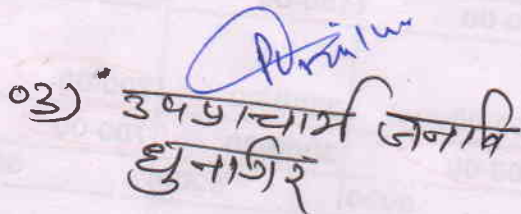 03) उपप्राचार्य जनावि
धुनागिर